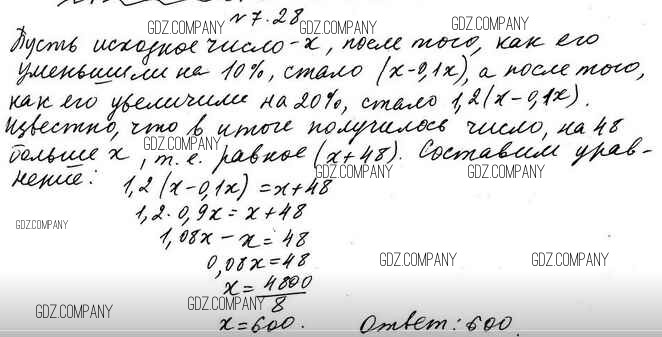 № 7.28
Пусть исходное число - x, после того, как его
уменьшили на 10%, стало (x-0,1x), а после того,
как его увеличили на 20%, стало 1,2(x-0,1x).
Известно, что в итоге получилось число, на 48
больше x, т.е. равное (x+48). Составим урав-
нение:
1,2(x-0,1x)=x+48
1,2·0,9x=x+48
1,08x-x=48
0,08x=48
x=4800/8
x=600. Ответ: 600.
GDZ.COMPANY
GDZ.COMPANY
GDZ.COMPANY
GDZ.COMPANY
GDZ.COMPANY
GDZ.COMPANY
GDZ.COMPANY
GDZ.COMPANY
GDZ.COMPANY
GDZ.COMPANY
GDZ.COMPANY
GDZ.COMPANY
GDZ.COMPANY
GDZ.COMPANY